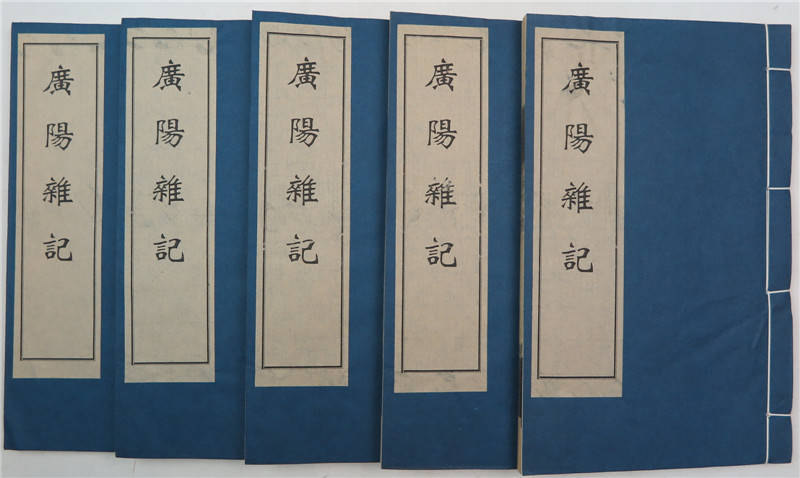 廣陽雜記
廣陽雜記
廣陽雜記
廣陽雜記
廣陽雜記